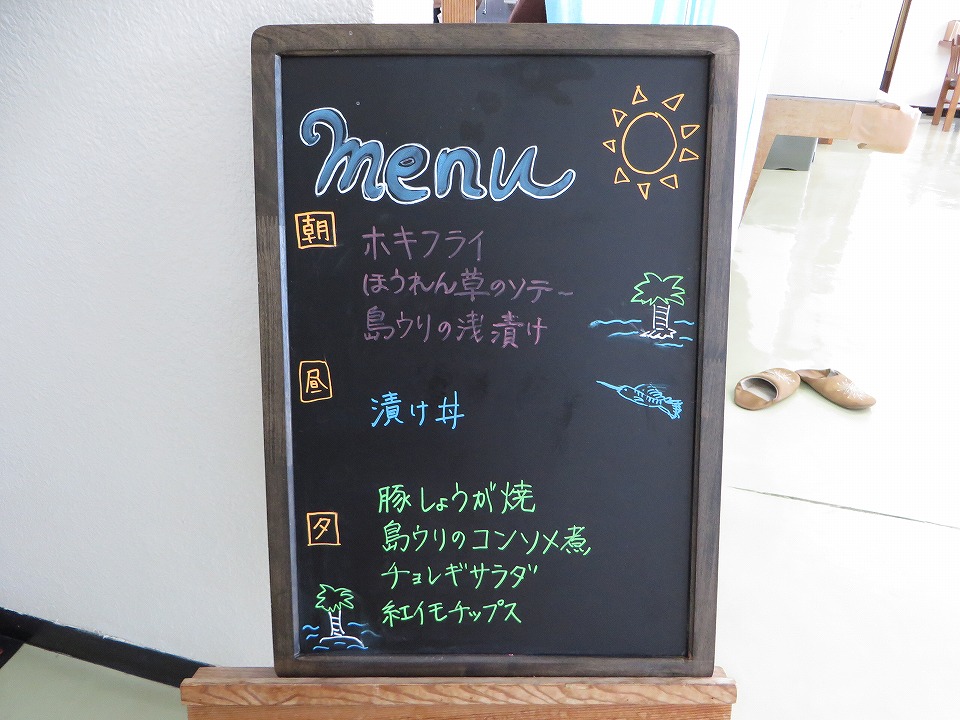 menu
朝
ホキフライ
ほうれん草のソテ～
島ウリの浅漬け
昼
漬け丼
夕
豚しょうが焼
島ウリのコンソメ煮
チョレギサラダ
紅イモチップス